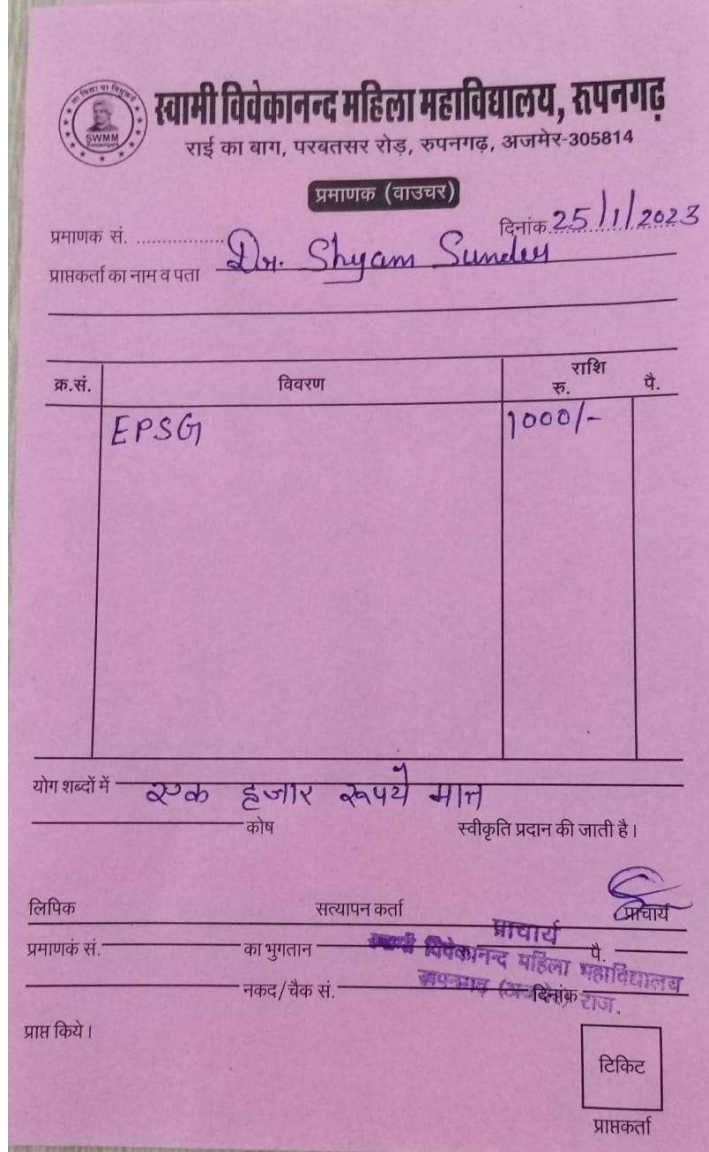 स्वामी विवेकानन्द महिला महाविद्यालय, रुपनगढ़
SWMM
राई का बाग, परबतसर रोड़, रुपनगढ़, अजमेर-305814
प्रमाणक (वाउचर)
प्रमाणक सं. .................. दिनांक 25/1/2023
प्राप्तकर्ता का नाम व पता Dr. Shyam Sunder
क्र.सं. विवरण राशि
रु. पै.
EPSG 1000/-
योग शब्दों में एक हजार रूपये मात्र
कोष स्वीकृति प्रदान की जाती है।
लिपिक सत्यापन कर्ता प्राचार्य
प्राचार्य
प्रमाणकं सं. का भुगतान पै.
स्वामी विवेकानन्द महिला महाविद्यालय
नकद/चैक सं. दिनांक
रूपनगढ़ (अजमेर) राज.
प्राप्त किये।
टिकिट
प्राप्तकर्ता